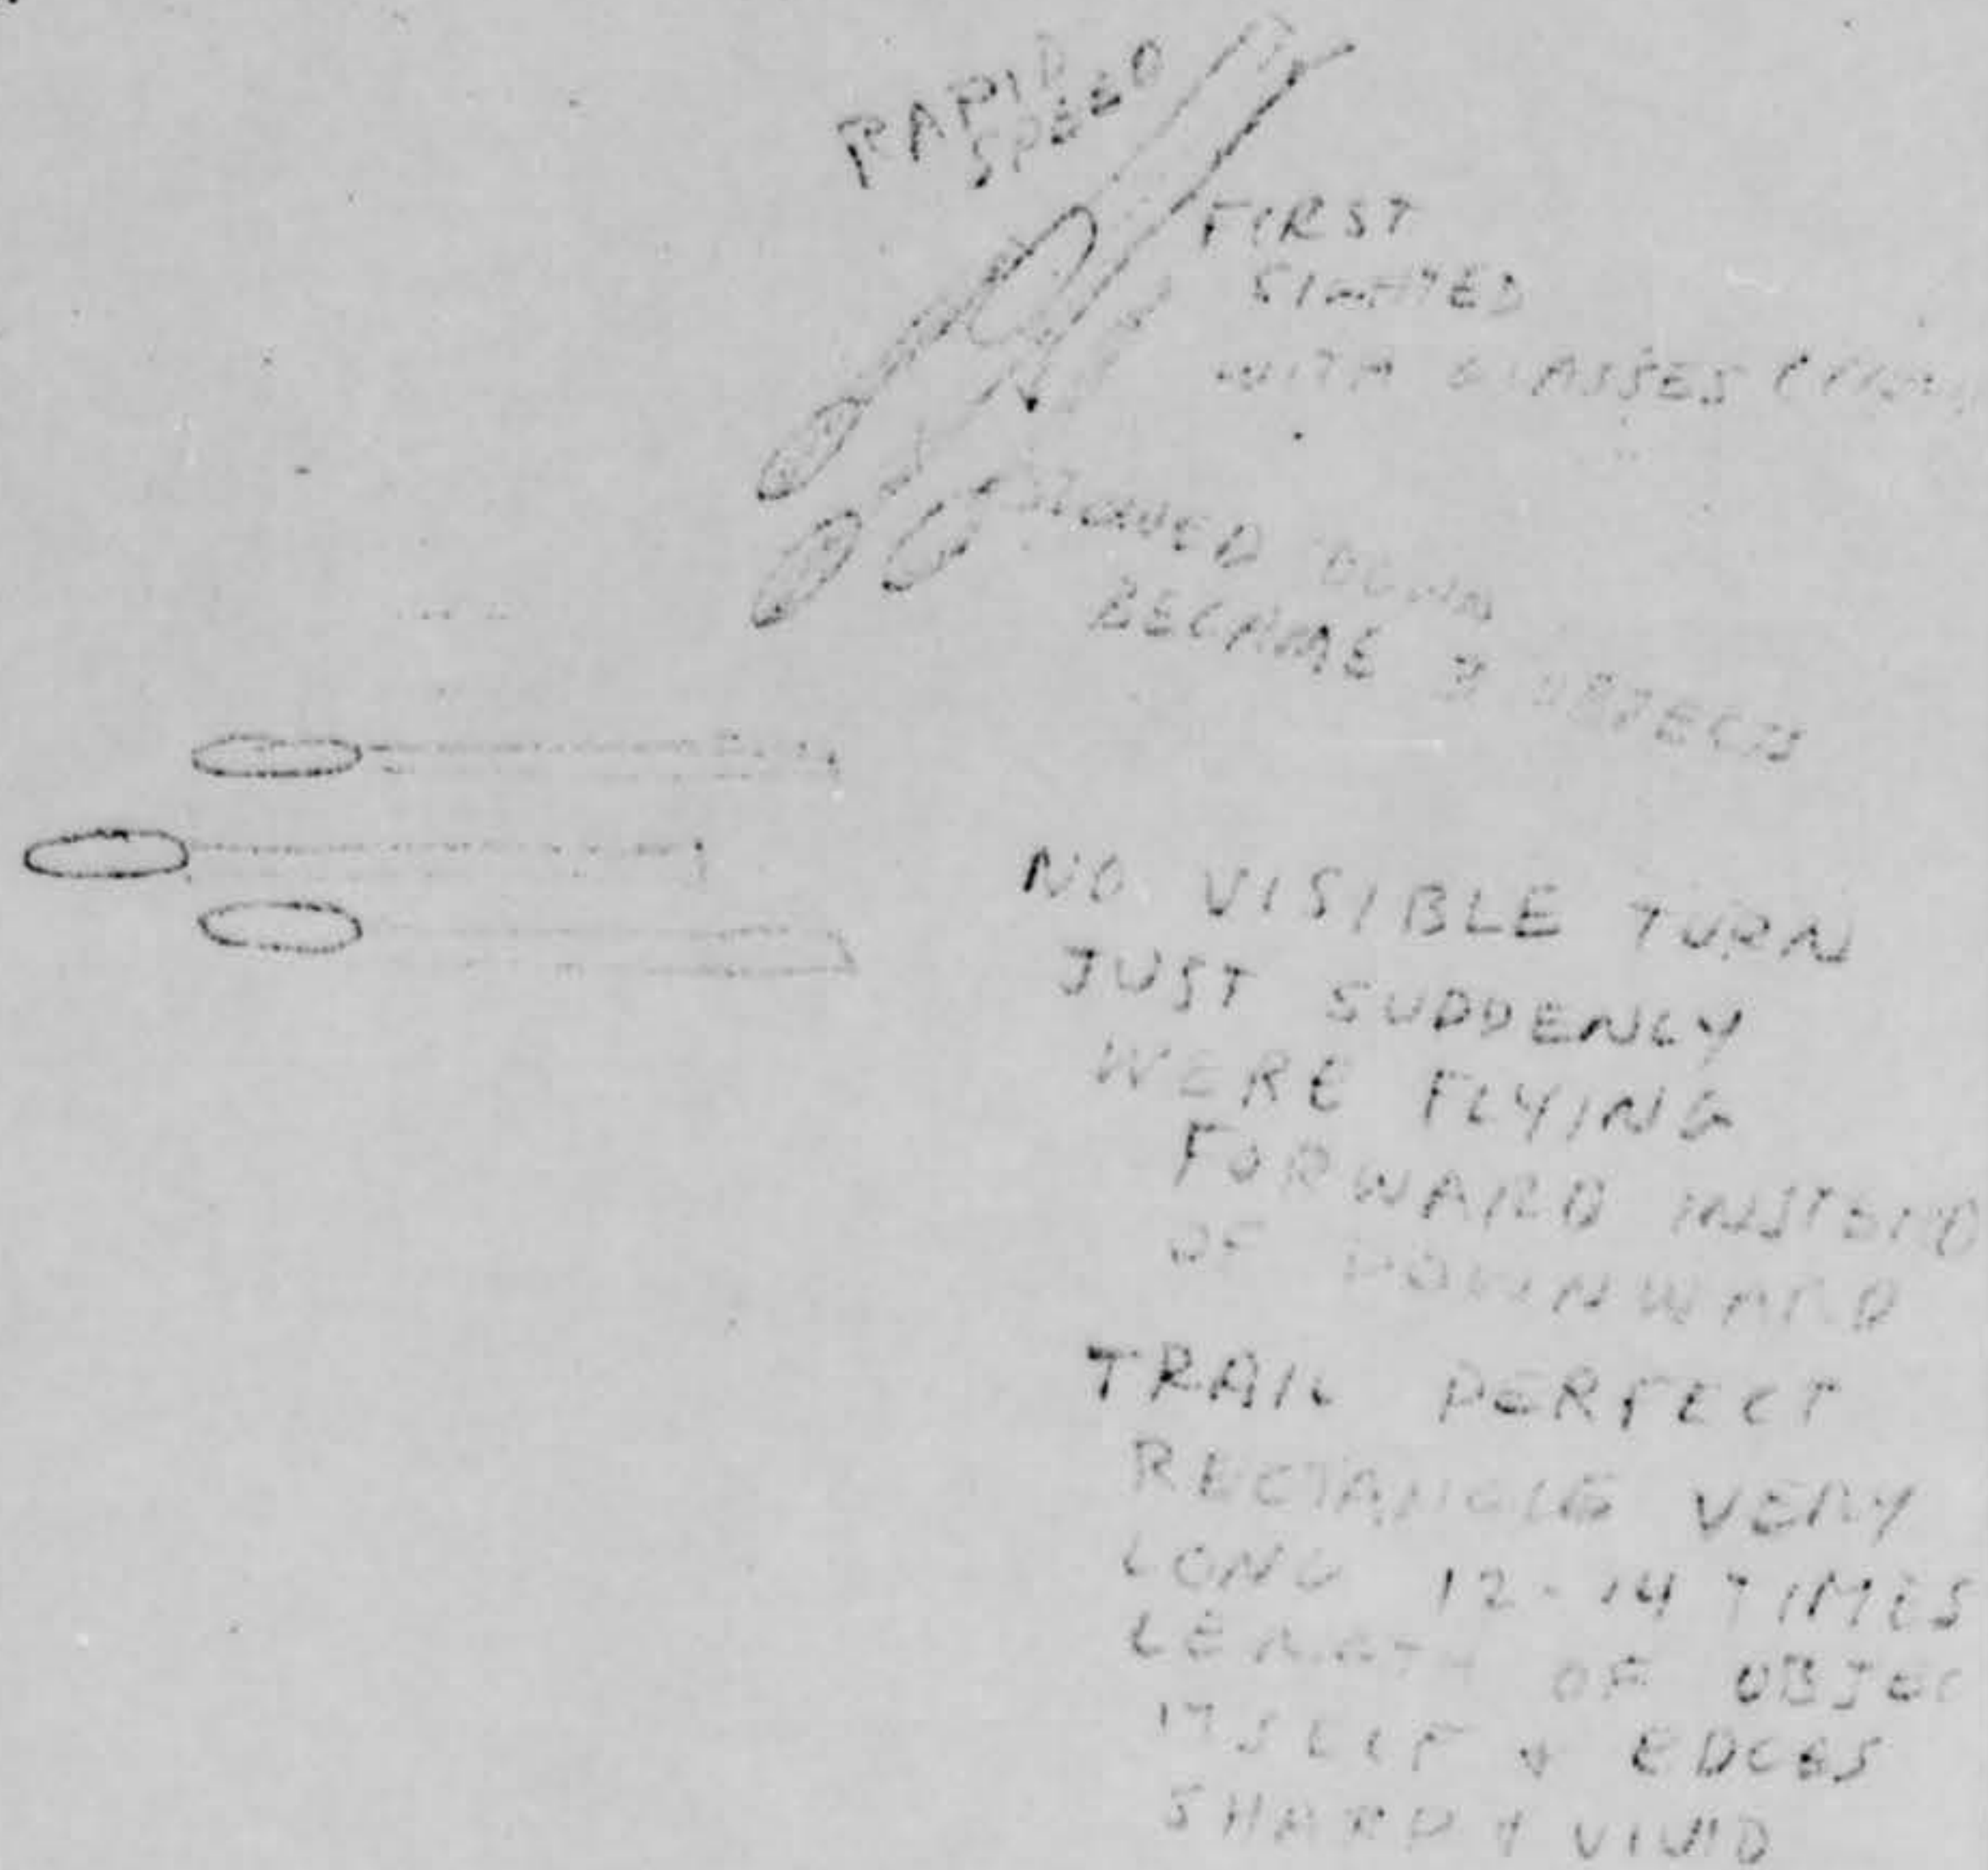 RAPID
SPEED
FIRST
SIGHTED
WITH GLASSES
SLOWED DOWN
BECAME 3 OBJECTS
NO VISIBLE TURN
JUST SUDDENLY
WERE FLYING
FORWARD INSTEAD
OF DOWNWARD
TRAIL PERFECT
RECTANGLE VERY
LONG 12-14 TIMES
LENGTH OF OBJEC
ITSELF & EDGES
SHARP & VIVID